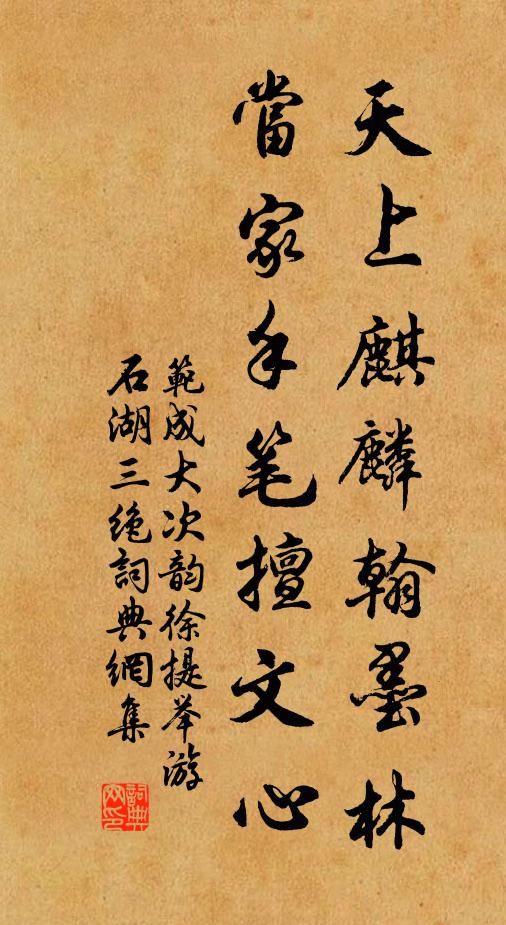 天上麒麟翰墨林
當家手笔擅文心
範成大次韵徐提举游
石湖三绝詞典網集
詞典網印